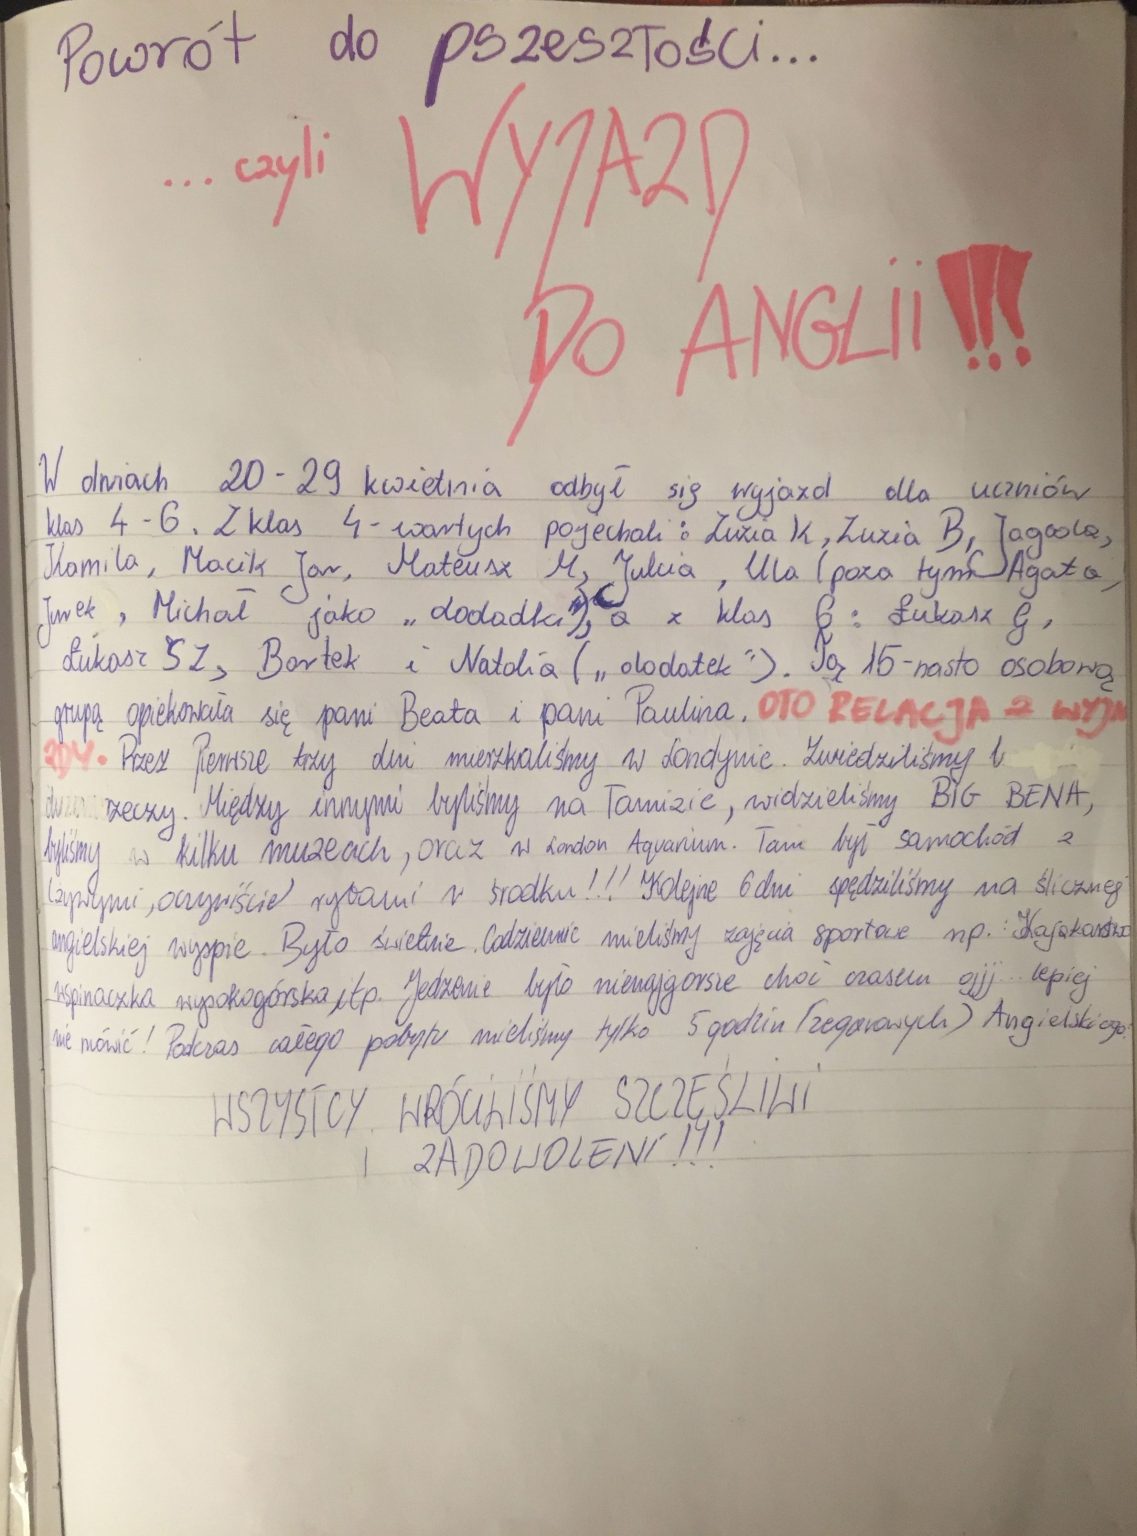 Powrót do pszeszłości...
... czyli WYJAZD
DO ANGLII!!!
W dniach 20-29 kwietnia odbył się wyjazd dla uczniów
klas 4-6. Z klas 4-wartych pojechali: Zuzia K, Zuzia B, Jagoda,
Kamila, Macik Jar, Mateusz M, Julcia, Ula (poza tym Agata,
Jurek, Michał jako „dodadki"), a z klas 6: Łukasz G,
Łukasz SZ, Bartek i Natalia („dodatek"). Tą 15-nasto osobową
grupą opiekowała się pani Beata i pani Paulina. OTO RELACJA Z WYJA
ZDU. Przez Pierwsze trzy dni mieszkaliśmy w Londynie. Zwiedziliśmy
rzeczy. Między innymi byliśmy na Tamizie, widzieliśmy BIG BENA,
byliśmy w kilku muzeach, oraz w London Aquarium. Tam był samochód z
(żywymi, oczywiście) rybami w środku!!! Kolejne 6 dni spędziliśmy na ślicznej
angielskiej wyspie. Było świetnie. Codziennie mieliśmy zajęcia sportowe np.: Kajakarstwo
wspinaczka wysokogórska itp. Jedzenie było nienajgorsze choć czasem ojjj... lepiej
nie mówić! Podczas całego pobytu mieliśmy tylko 5 godzin (zegarowych) Angielskiego.
WSZYSTCY WRÓCILIŚMY SZCZĘŚLIWI
I ZADOWOLENI!!!